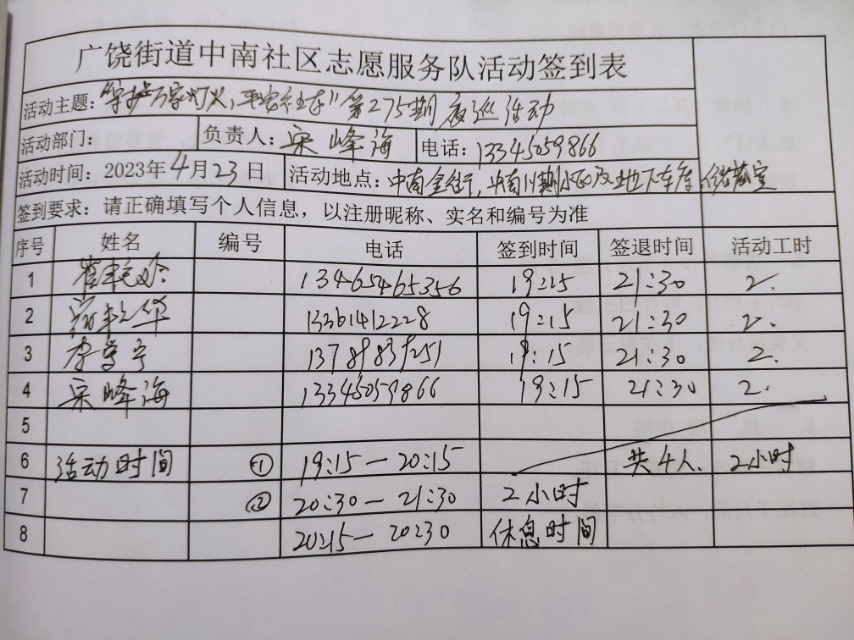 广饶街道中南社区志愿服务队活动签到表
活动主题：“守护万家灯火，平安社区”第275期夜巡活动
活动部门： 负责人：宋峰海 电话：13345059866
活动时间：2023年4月23日 活动地点：中南金街，中南小区及地下车库
签到要求：请正确填写个人信息，以注册昵称、实名和编号为准
序号 姓名 编号 电话 签到时间 签退时间 活动工时
1 13465465356 19:15 21:30 2.
2 13361412228 19:15 21:30 2.
3 13789839251 19:15 21:30 2.
4 宋峰海 13345059866 19:15 21:30 2.
5
6 活动时间 ① 19:15—20:15 共4人. 2小时
7 ② 20:30—21:30 2小时
8 20:15—20:30 休息时间